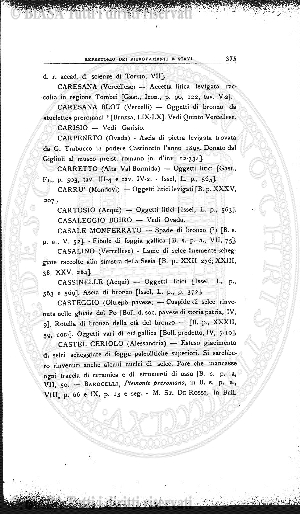 REPERTORIO DEI RITROVAMENTI E SCAVI 375
d. r. accad. di scienze di Torino, VII].
CARESANA (Vercellese) — Accetta litica levigata rac-
colta in regione Tombei [Gast., Icon., p. 90, 122, tav. V-2].
CARESANA BLOT (Vercelli) — Oggetti di bronzo da
[Brusca, LIX-LX]. Vedi Quinto Vercellese.
CARISIO — Vedi Garisio.
CARPENETO (Ovada) - Ascia di pietra levigata trovata
da G. Frubocco in podere Casinocio l'anno 1895. Donato dal
Giglioli al museo preist. romano in d'inv.
CARRETTO (Alta Val Bormida) — Oggetti litici [Gast.,
p. 303, tav. e tav. - Issel, L. p., 563].
CARRU' (Mondovì) — Oggetti litici levigati [B. p. XXXV,
207.
CARTOSIO (Acqui) — Oggetti litici [Issel, L. p., 563].
CASALEGGIO BOIRO — Vedi Ovada.
CASALE MONFERRATO — Spade di bronzo (?) [B. s.
a., V. 52]. - Fibule di foggia gallica [B. s. p. a., VII, 75].
CASALINO (Vercellese) - Lame di selce finemente scheg-
giate raccolte alla sinistra della Sesia [B. p. XXII, 236; XXIII,
38, XXV, 284].
CASSINELLE (Acqui) — Oggetti litici [Issel, L. p.,
563 e 569]. Ascia di bronzo [Issel, L. p., p. 572].
CASTEGGIO (Oltrepò pavese) — Cuspide di selce rinve-
nuta nelle ghiaie del Po [Boll. d. soc. pavese di storia patria, IV,
9]. Rotella di bronzo della età del bronzo — [B. p., XXXII,
59, 606]. Oggetti vari di età gallica [Boll. predetto, IV, 510].
CASTEL CERIOLO (Alessandria) — Esteso giacimento
di selci scheggiate di foggie paleolitiche superiori. Si sarebbe-
ro rinvenuti anche alcuni nuclei di selce. Pare che mancasse
ogni traccia di ceramica e di strumenti di osso [B. s. p. a.,
VII, 50. — BAROCELLI, Piemonte preromano, in B. s. p. a.,
VIII, p. 66 e IX, p. 13 e seg. - M. St. De Rossi, in Bull.